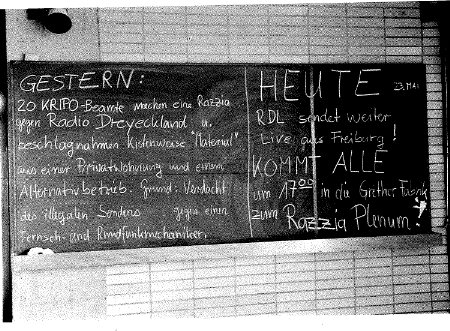 GESTERN:
20 KRIPO-Beamte machen eine Razzia
gegen Radio Dreyeckland u.
beschlagnahmen kistenweise "Material"
aus einer Privatwohnung und einem
Alternativbetrieb. Grund: Verdacht
des illegalen Sendens gegen einen
Fernseh- und Rundfunkmechaniker.
HEUTE 23. MAI
RDL sendet weiter
Live aus Freiburg!
KOMMT ALLE
um 17⁰⁰ in die Grether Fabrik
zum Razzia Plenum!